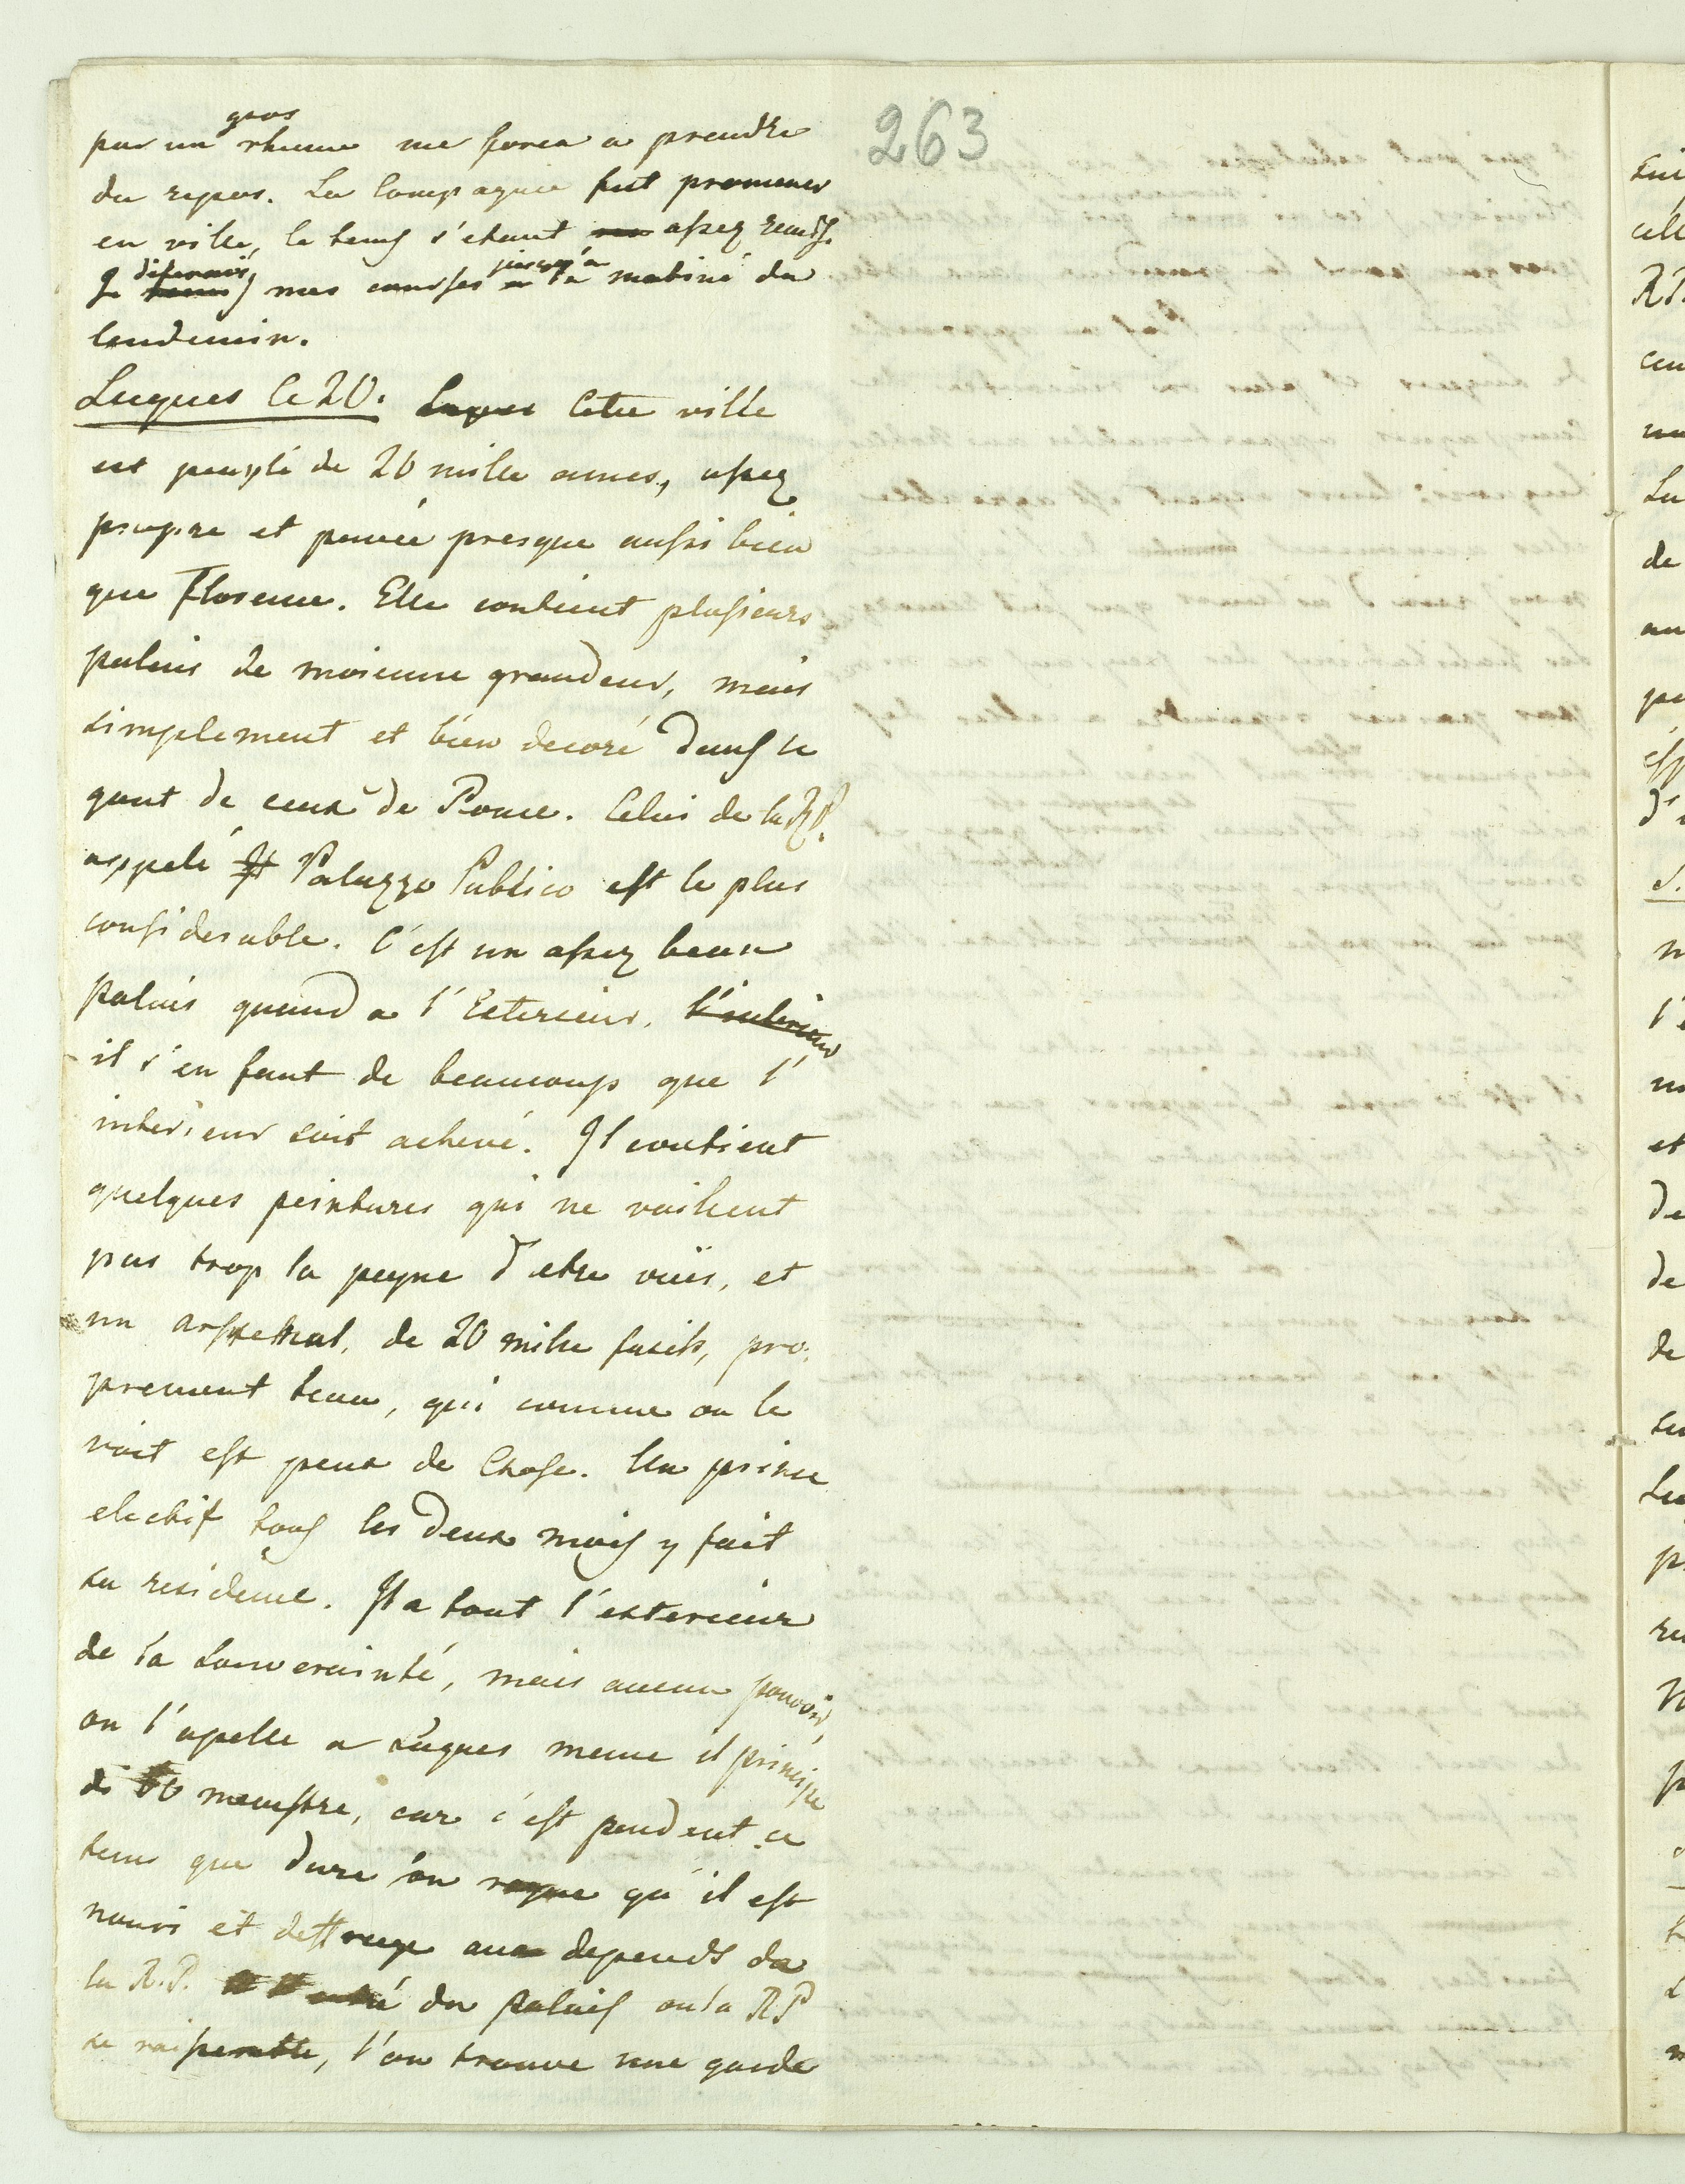 263
gros
par un rhume me forca a prendre
du repos. La Compagnie fut promener
en ville, le temps s'etant assez remis.
diferais jusqu'a
Je mes courses la matiné du
lendemin.
Luques le 20. Luques Cette ville
est peuplé de 20 mille ames, assez
propre et pavée presque aussi bien
que Florence. Elle contient plusieurs
palais de moienne grandeur, mais
simplement et bien decoré dans le
gout de ceux de Rome. Celui de la RP.
appelé Palazzo Publico est le plus
considerable. C'est un assez beau
palais quand a l'Exterieur. l'interieur
il s'en faut de beaucoup que l'
interieur soit achevé. Il contient
quelques peintures qui ne vailient
pas trop la peyne d'etre vuës, et
un arsenal, de 20 mille fusils, pro:
prement tenu, qui comme on le
voit est peux de Chose. Un prince
electif tous les deux mois y fait
sa residence. Il a tout l'exterieur
de la Souverainté, mais aucun pouvoir,
on l'apelle a Luques meme il principe
di menstre, car c'est pendent ce
tems que dure son regne qu'il est
nouri et deffraye aux depends de
la R.P. du palais ou la RP
se, l'on trouve une garde